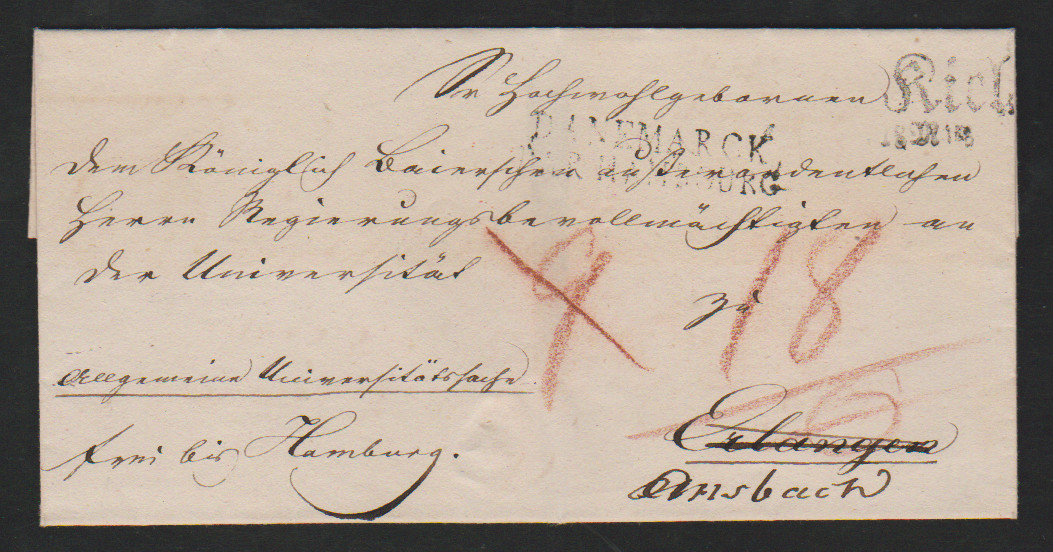 Sr Hochwohlgebornen
Kiel
DÄNEMARCK
HAMBURG
dem Königlich Baierschen außerordentlichen
Herrn Regierungsbevollmächtigten an
der Universität
zu
9 18
Allgemeine Universitätssache
Erlangen
frei bis Hamburg.
Ansbach